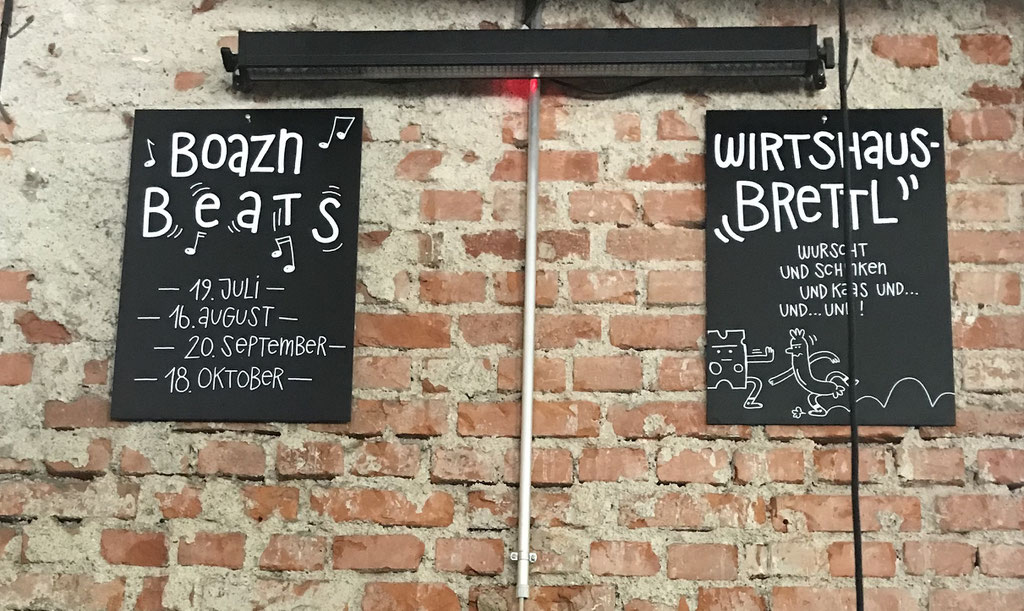 Boazn
Beats
– 19. Juli –
– 16. August –
– 20. September –
– 18. Oktober –
Wirtshaus-
„Brettl”
Wurscht
und Schinken
und Kaas und...
und...und!